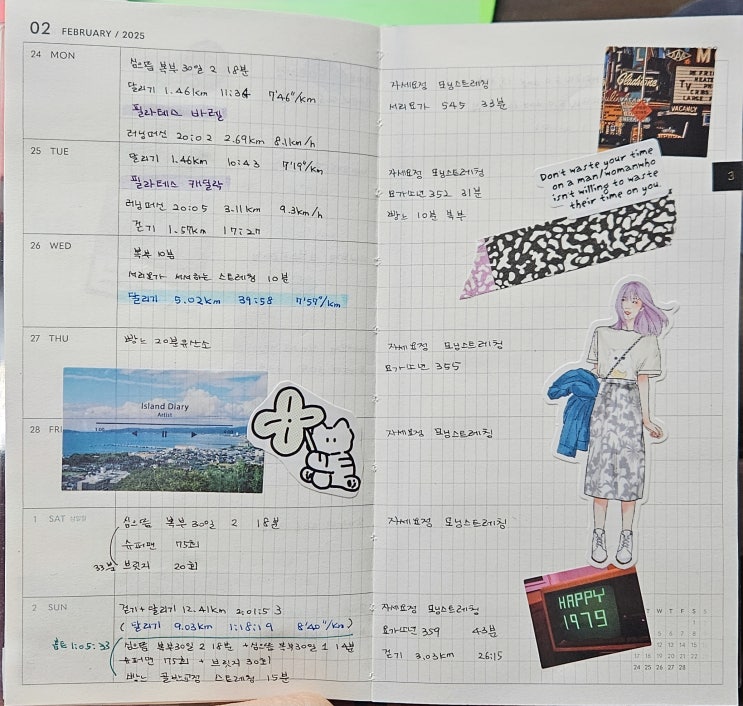 02 FEBRUARY / 2025
24 MON
심으뜸 복부 30일 2 18분
달리기 1.46km 11:34 7'46"/km
필라테스 바렐
러닝머신 20:02 2.69km 8.1km/h
자세요정 모닝스트레칭
서리요가 545 33분
25 TUE
달리기 1.46km 10:43 7'19"/km
필라테스 캐딜락
러닝머신 20:05 3.11km 9.3km/h
걷기 1.57km 17:27
자세요정 모닝스트레칭
요가소년 352 31분
빵느 10분 복부
26 WED
복부 10분
서리요가 서서하는 스트레칭 10분
달리기 5.02km 39:58 7'57"/km
27 THU
빵느 20분유산소
자세요정 모닝스트레칭
요가소년 355
28 FRI
자세요정 모닝스트레칭
1 SAT 삼일절
심으뜸 복부 30일 2 18분
슈퍼맨 75회
33분 브릿지 20회
자세요정 모닝스트레칭
2 SUN
걷기+달리기 12.41km 2:01:53
(달리기 9.03km 1:18:19 8'40"/km)
홈트 1:05:33
심으뜸 복부30일 2 18분 +심으뜸 복부30일 1 14분
슈퍼맨 75회 + 브릿지 30회
빵느 골반교정 스트레칭 15분
자세요정 모닝스트레칭
요가소년 359 43분
걷기 3.03km 26:15
Island Diary
Artist
Gladstone
VACANCY
VACANCY
Don't waste your time
on a man/woman who
isn't willing to waste
their time on you.
3
HAPPY
1979
T W T F S S
17 18 19 20 21 22 23
24 25 26 27 28